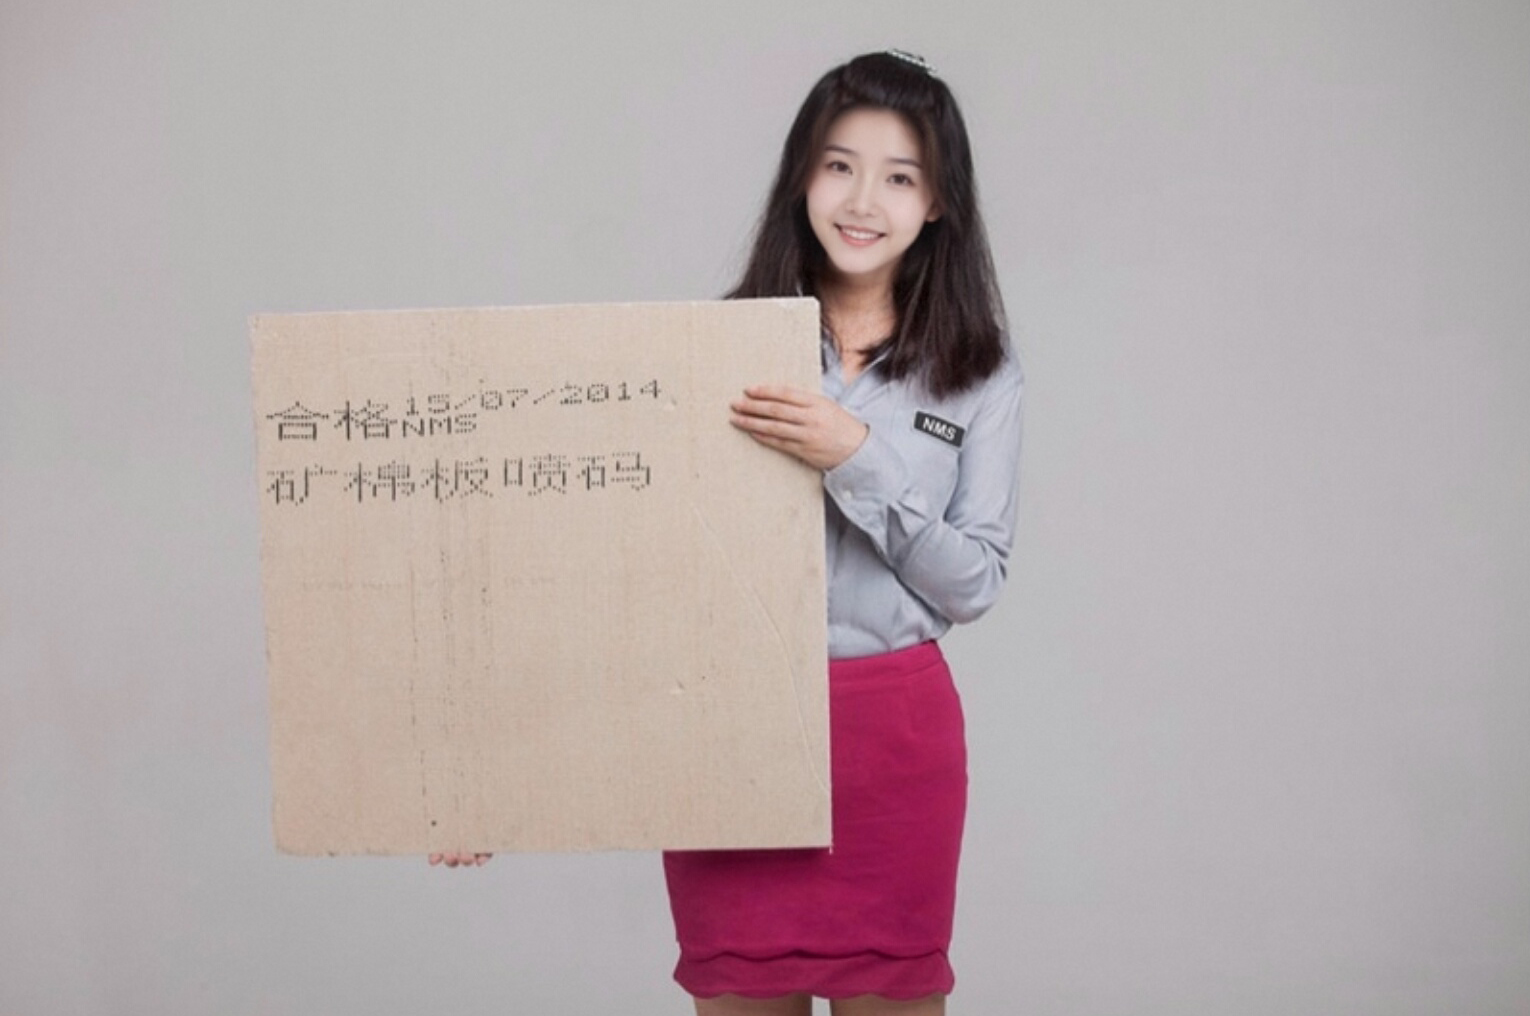 合格 15/07/2014
NMS
矿棉板喷码
NMS